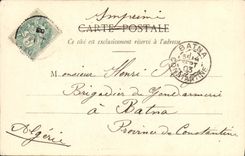 Imprimé
CARTE POSTALE
Ce côté est exclusivement réservé à l'adresse
BATNA
Monsieur Henri
Brigadier de Gendarmerie
à Batna
Algérie
Province de Constantine